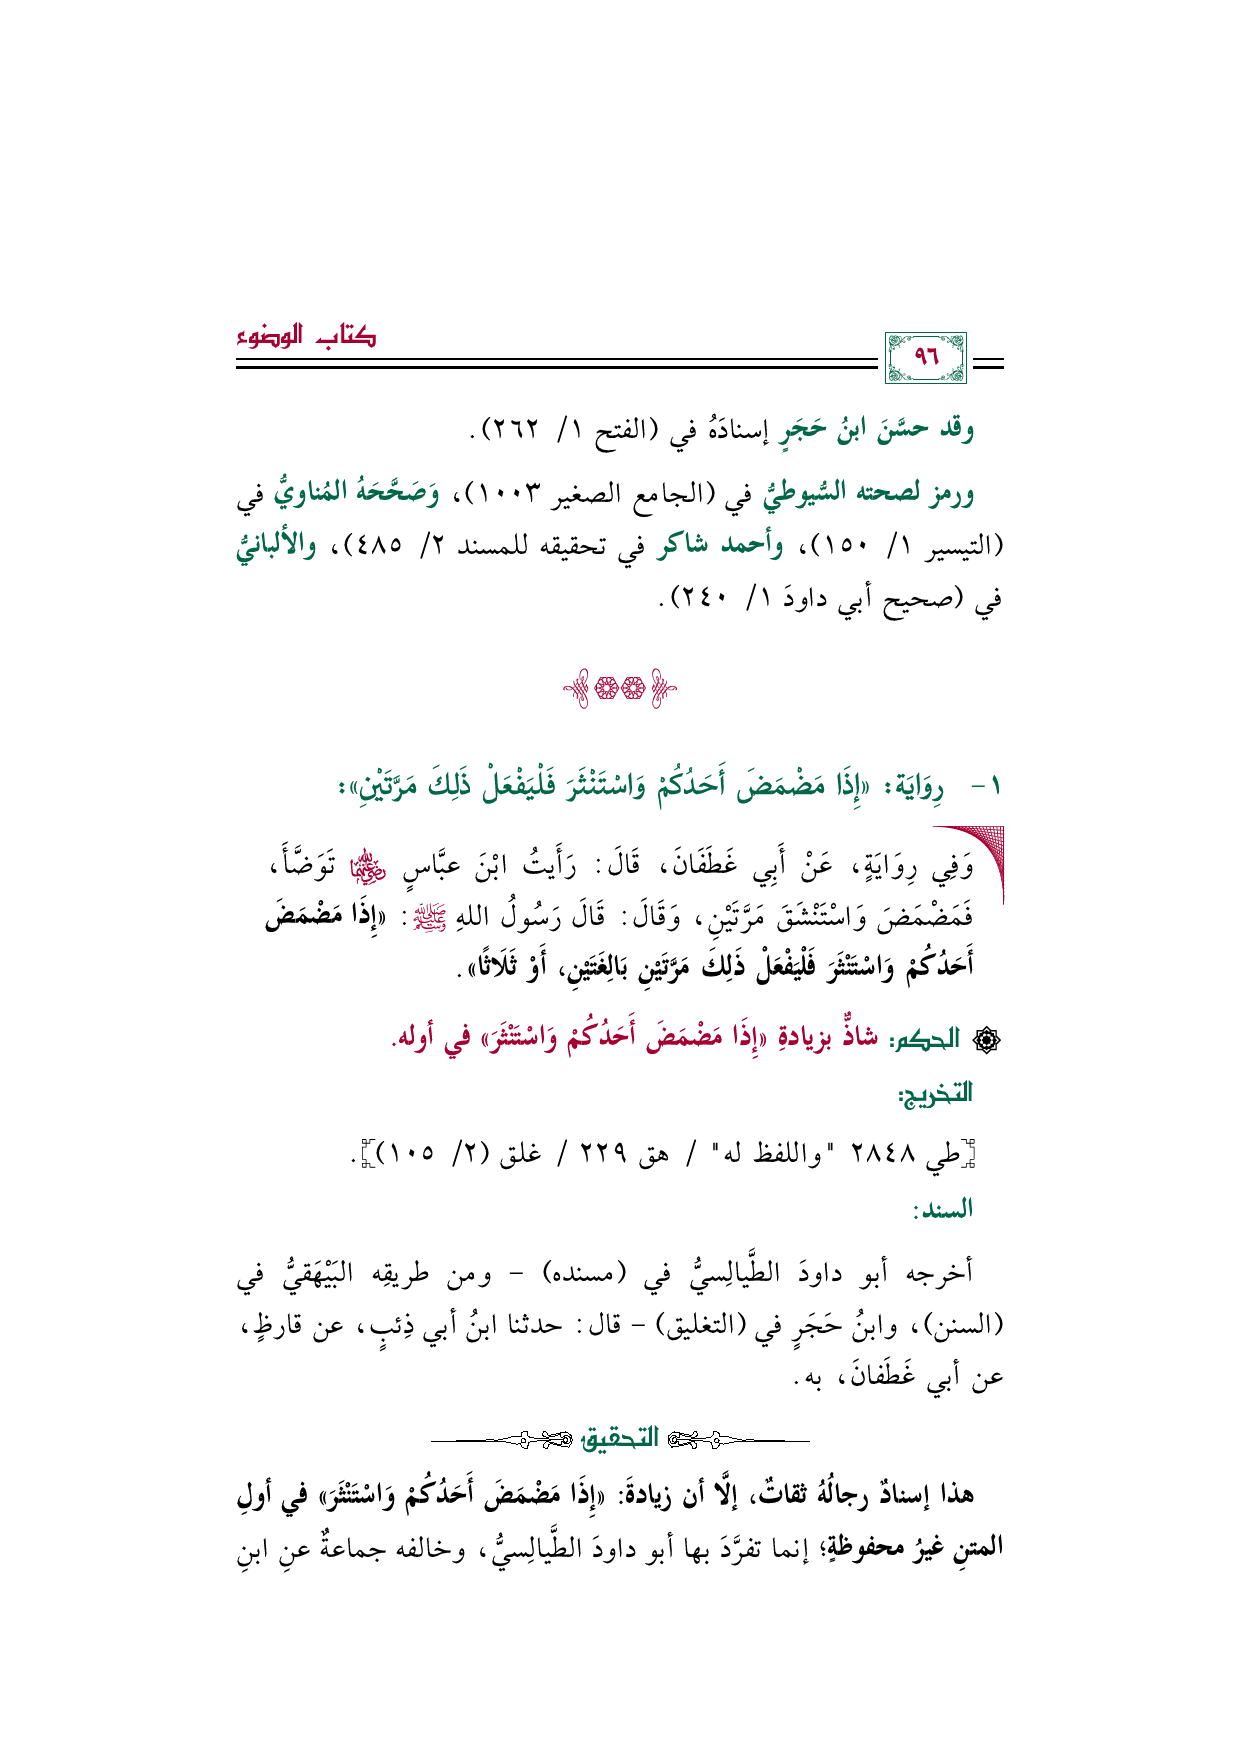 كتاب الوضوء
٩٦
وقد حسَّنَ ابنُ حَجَرٍ إسنادَهُ في (الفتح ١/ ٢٦٢).
ورمز لصحته السُّيوطيُّ في (الجامع الصغير ١٠٠٣)، وَصَحَّحَهُ المُناويُّ في
(التيسير ١/ ١٥٠)، وأحمد شاكر في تحقيقه للمسند ٢/ ٤٨٥)، والألبانيُّ
في (صحيح أبي داودَ ١/ ٢٤٠).
١- رِوَايَة: «إِذَا مَضْمَضَ أَحَدُكُمْ وَاسْتَنْثَرَ فَلْيَفْعَلْ ذَلِكَ مَرَّتَيْنِ»:
وَفِي رِوَايَةٍ، عَنْ أَبِي غَطَفَانَ، قَالَ: رَأَيتُ ابْنَ عبَّاسٍ رضي الله عنهما تَوَضَّأَ،
فَمَضْمَضَ وَاسْتَنْشَقَ مَرَّتَيْنِ، وَقَالَ: قَالَ رَسُولُ اللهِ ﷺ: «إِذَا مَضْمَضَ
أَحَدُكُمْ وَاسْتَنْثَرَ فَلْيَفْعَلْ ذَلِكَ مَرَّتَيْنِ بَالِغَتَيْنِ، أَوْ ثَلَاثًا».
الحكم: شاذٌّ بزيادةِ «إِذَا مَضْمَضَ أَحَدُكُمْ وَاسْتَنْثَرَ» في أوله.
التخريج:
[طي ٢٨٤٨ "واللفظ له" / هق ٢٢٩ / غلق (٢/ ١٠٥)].
السند:
أخرجه أبو داودَ الطَّيالِسيُّ في (مسنده) - ومن طريقِه البَيْهَقيُّ في
(السنن)، وابنُ حَجَرٍ في (التغليق) - قال: حدثنا ابنُ أبي ذِئبٍ، عن قارظٍ،
عن أبي غَطَفانَ، به.
التحقيق
هذا إسنادٌ رجالُهُ ثقاتٌ، إلَّا أن زيادةَ: «إِذَا مَضْمَضَ أَحَدُكُمْ وَاسْتَنْثَرَ» في أولِ
المتنِ غيرُ محفوظةٍ؛ إنما تفرَّدَ بها أبو داودَ الطَّيالِسيُّ، وخالفه جماعةٌ عنِ ابنِ